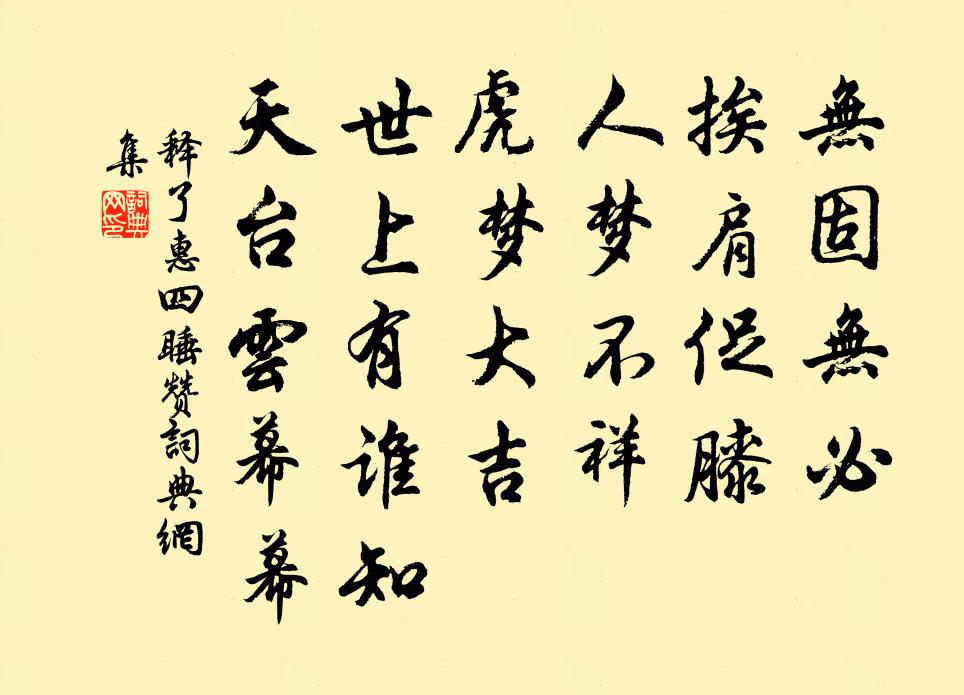 無固無必
挨肩促膝
人梦不祥
虎梦大吉
世上有谁知
天台雲幕幕
释了惠四睡赞詞典網
集
詞典
网印